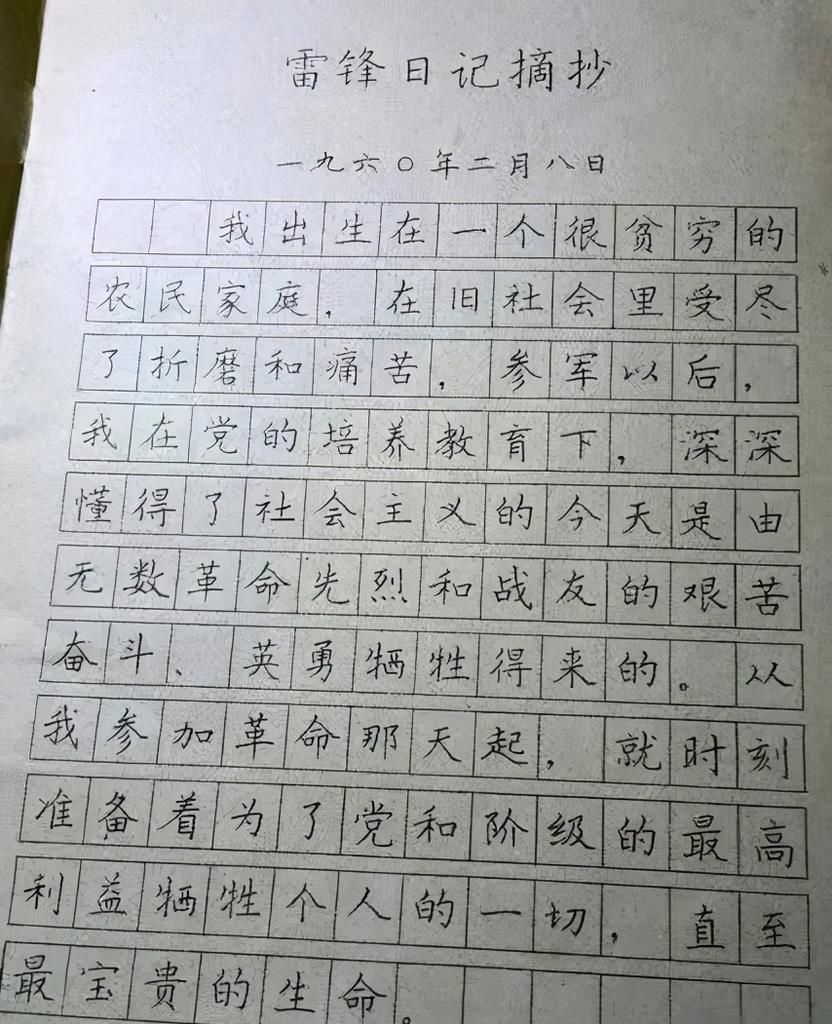 雷锋日记摘抄
一九六〇年二月八日
我出生在一个很贫穷的
农民家庭，在旧社会里受尽
了折磨和痛苦，参军以后，
我在党的培养教育下，深深
懂得了社会主义的今天是由
无数革命先烈和战友的艰苦
奋斗、英勇牺牲得来的。从
我参加革命那天起，就时刻
准备着为了党和阶级的最高
利益牺牲个人的一切，直至
最宝贵的生命。